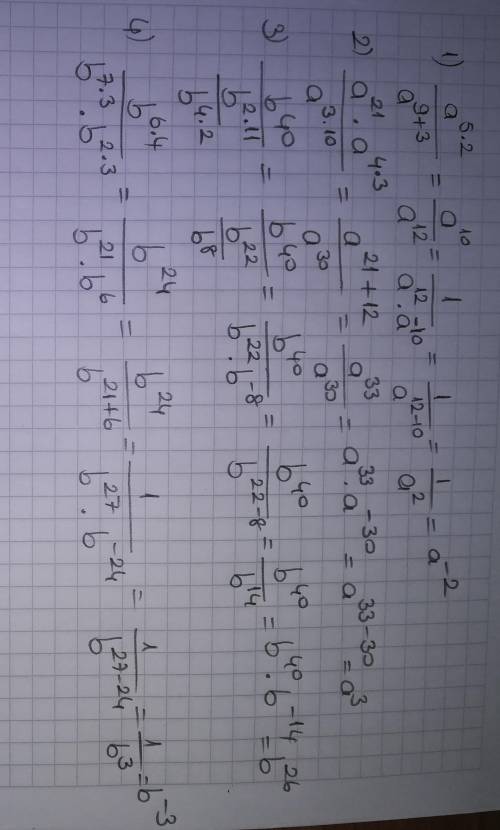 1) a^{5·2}/a^{9+3} = a^{10}/a^{12} = 1/(a^{12}·a^{-10}) = 1/a^{12-10} = 1/a^2 = a^{-2}
2) (a^{21}·a^{4·3})/a^{3·10} = a^{21+12}/a^{30} = a^{33}/a^{30} = a^{33}·a^{-30} = a^{33-30} = a^3
3) b^{40}/(b^{2·11}/b^{4·2}) = b^{40}/(b^{22}/b^8) = b^{40}/(b^{22}·b^{-8}) = b^{40}/b^{22-8} = b^{40}/b^{14} = b^{40}·b^{-14} = b^{26}
4) b^{6·4}/(b^{7·3}·b^{2·3}) = b^{24}/(b^{21}·b^6) = b^{24}/b^{21+6} = 1/(b^{27}·b^{-24}) = 1/b^{27-24} = 1/b^3 = b^{-3}